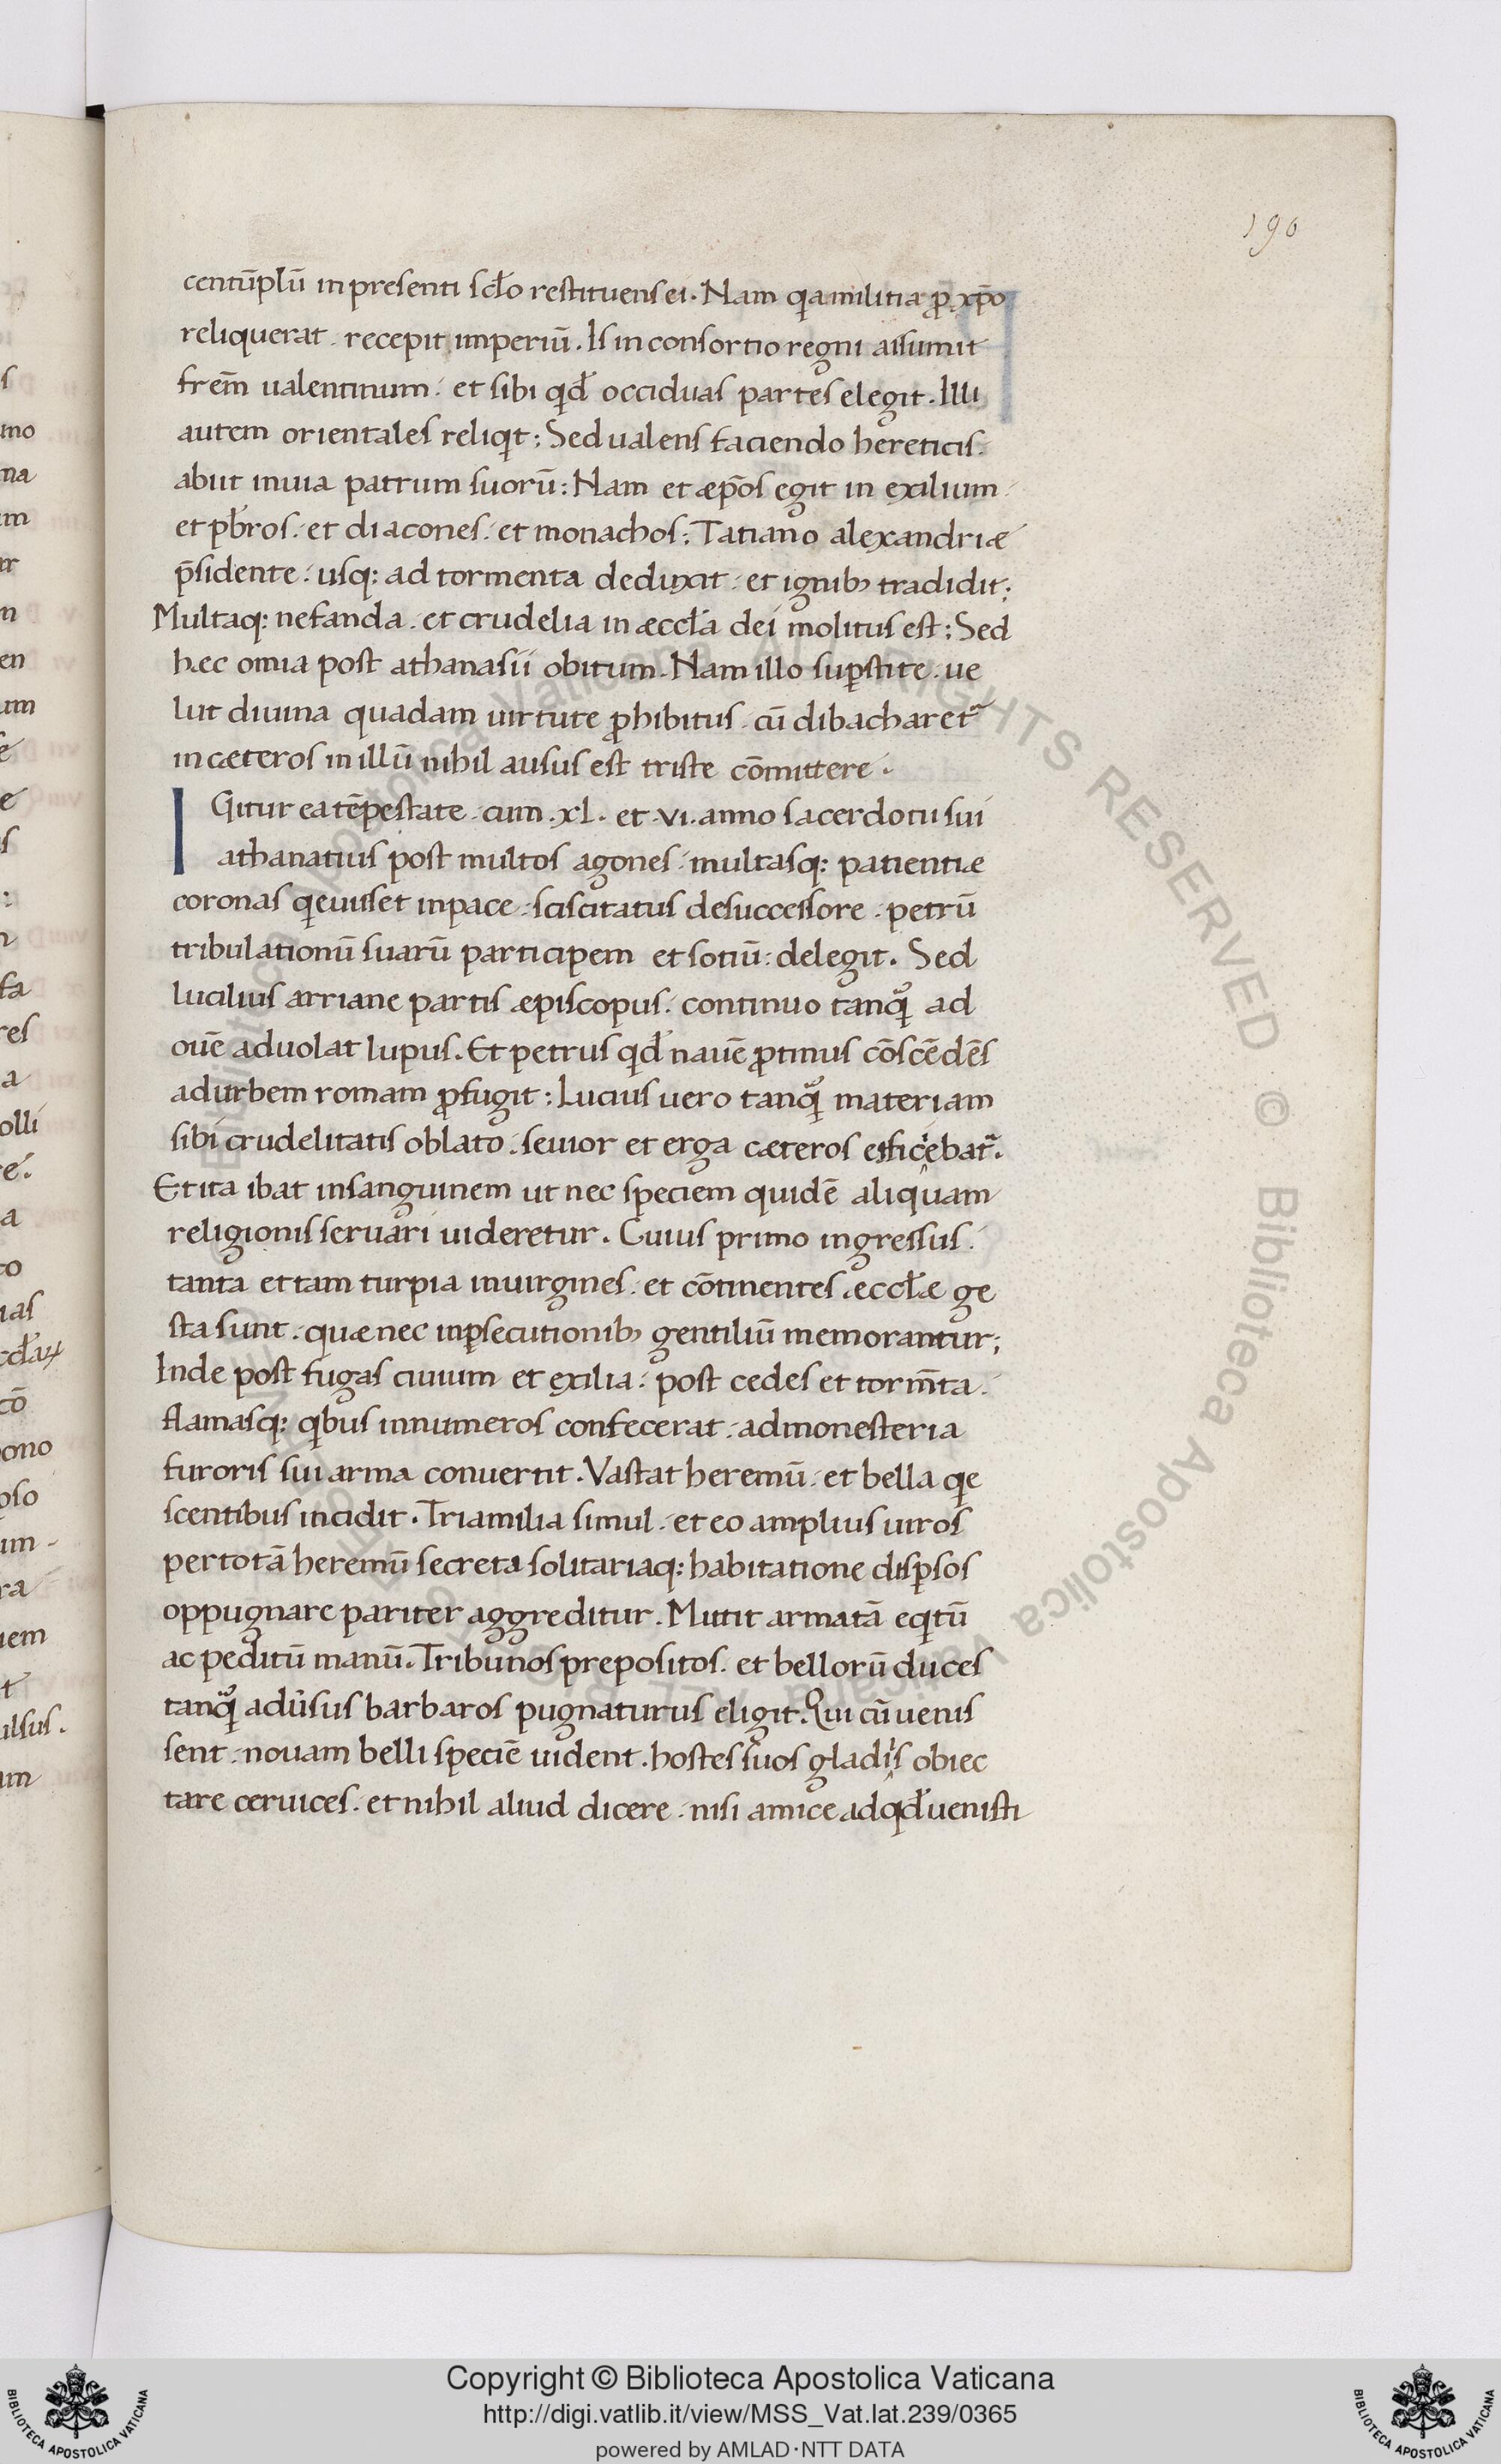 190
centū̄plū in presenti sclo restituens ei. Nam qa militia p xp̄o
reliquerat. recepit imperiū. Is in consortio regni assumit
frēm ualentinum. et sibi qd occiduas partes elegit. Illi
autem orientales reliqt; Sed ualens faciendo hereticis.
abiit in uia patrum suorū: Nam et æp̄os egit in exilium
et pbros. et diacones. et monachos; Tatiano alexandriæ
p̄sidente. usq: ad tormenta deduxit. et ignib; tradidit;
Multaq: nefanda. et crudelia in æccła dei molitus est; Sed
hæc omia post athanasii obitum. Nam illo suꝑstite. ue
lut diuina quadam uirtute ꝓhibitus. cū dibacharet᷑
in cæteros in illū nihil ausus est triste cōmittere.
IGitur ea tēpestate. cum .xl. et .vi. anno sacerdotii sui
athanatius post multos agones. multasq: patientiæ
coronas qeuisset in pace. sciscitatus de successore. petrū
tribulationū suarū participem et sotiū: delegit. Sed
lucilius arriane partis æpiscopus. continuo tanqͣ ad
ouē aduolat lupus. Et petrus qd nauē ꝓtinus cōscēdēs
ad urbem romam ꝓfugit; Lucius uero tanqͣ materiam
sibi crudelitatis oblato. seuior et erga cæteros efficiebat᷑.
Et ita ibat in sanguinem ut nec speciem quidē aliquam
religionis seruari uideretur. Cuius primo ingressus.
tanta et tam turpia in uirgines. et cōtinentes æccłæ ge
sta sunt. quæ nec in ꝑsecutionib; gentiliū memorantur;
Inde post fugas ciuium et exilia. post cedes et torm̄ta.
flamasq: qbus innumeros confecerat. ad monesteria
furoris sui arma conuertit. Vastat heremū. et bella qe
scentibus incidit. Tria milia simul. et eo amplius uiros
per totā heremū secreta solitariaq: habitatione disꝑsos
oppugnare pariter aggreditur. Mittit armatā eqtū
ac peditū manū. Tribunos prepositos. et bellorū duces
tanqͣ aduīsus barbaros pugnaturus eligit. Qui cū uenis
sent. nouam belli speciē uident. hostes suos gladiis obiec
tare ceruices. et nihil aliud dicere. nisi amice ad qd uenisti
Copyright © Biblioteca Apostolica Vaticana
http://digi.vatlib.it/view/MSS_Vat.lat.239/0365
powered by AMLAD·NTT DATA